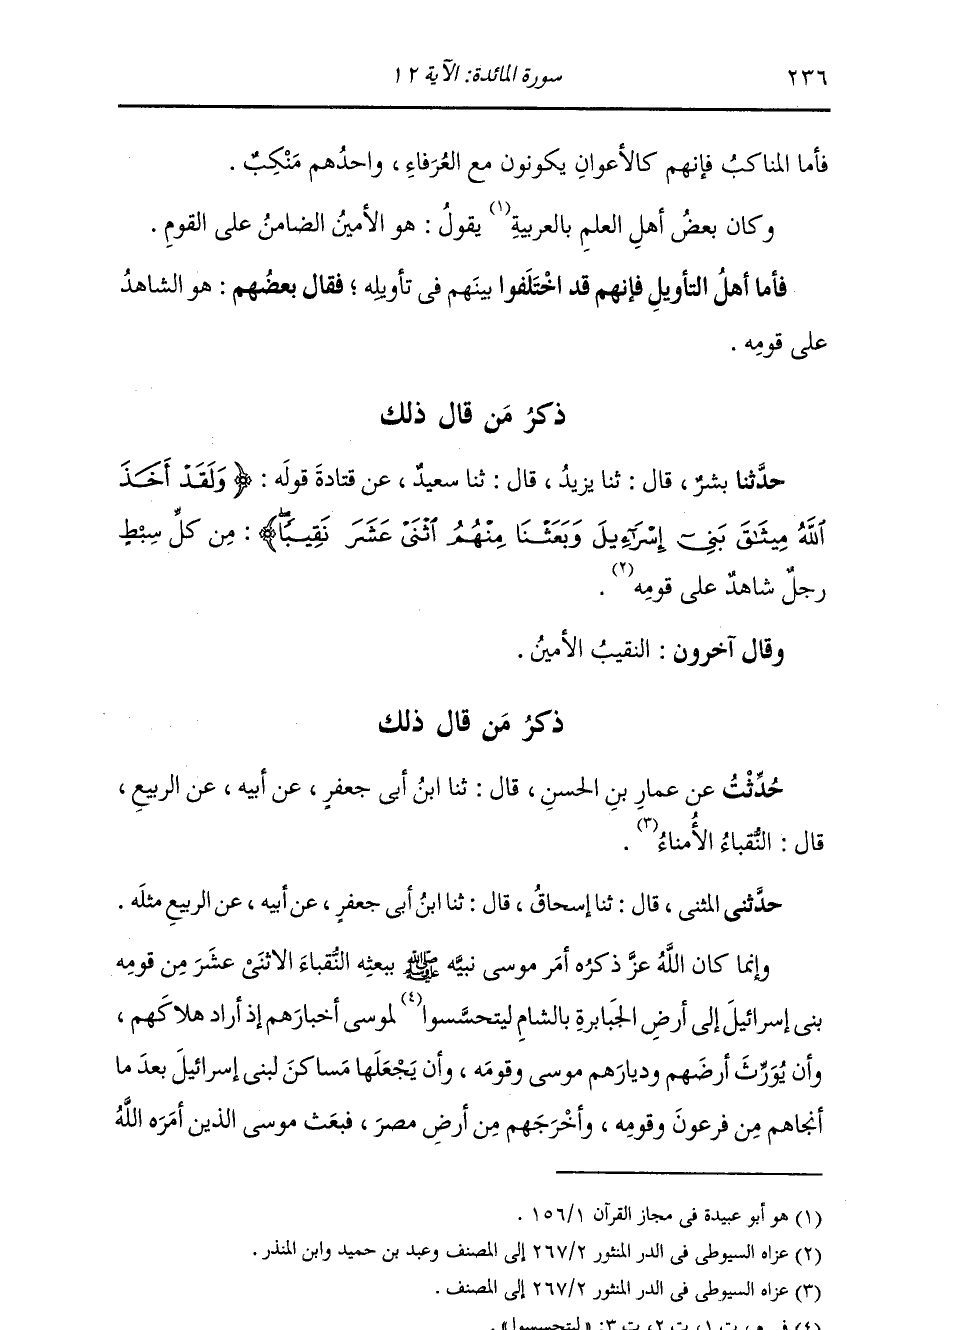 ٢٣٦ سورة المائدة: الآية ١٢
فأما المناكبُ فإنهم كالأعوانِ يكونون مع العُرَفاءِ ، واحدُهم مَنْكِبٌ .
وكان بعضُ أهلِ العلمِ بالعربيةِ(١) يقولُ : هو الأمينُ الضامنُ على القومِ .
فأما أهلُ التأويلِ فإنهم قد اخْتَلَفوا بينَهم فى تأويلِه ؛ فقال بعضُهم : هو الشاهدُ
على قومِه .
ذكرُ مَن قال ذلك
حدَّثنا بشرٌ ، قال : ثنا يزيدُ ، قال : ثنا سعيدٌ ، عن قتادةَ قولَه : ﴿ وَلَقَدْ أَخَذَ
ٱللَّهُ مِيثَٰقَ بَنِىٓ إِسْرَٰٓءِيلَ وَبَعَثْنَا مِنْهُمُ ٱثْنَىْ عَشَرَ نَقِيبًاۖ﴾ : مِن كلِّ سِبْطٍ
رجلٌ شاهدٌ على قومِه(٢) .
وقال آخرون : النقيبُ الأمينُ .
ذكرُ مَن قال ذلك
حُدِّثْتُ عن عمارِ بنِ الحسنِ ، قال : ثنا ابنُ أبى جعفرٍ ، عن أبيه ، عن الربيعِ ،
قال : النُّقباءُ الأُمناءُ(٣) .
حدَّثنى المثنى ، قال : ثنا إسحاقُ ، قال : ثنا ابنُ أبى جعفرٍ ، عن أبيه ، عن الربيعِ مثلَه .
وإنما كان اللَّهُ عزَّ ذكرُه أمَر موسى نبيَّه ﷺ ببعثِه النُّقباءَ الاثنَىْ عشَرَ مِن قومِه
بنى إسرائيلَ إلى أرضِ الجَبابرةِ بالشامِ ليتحسَّسوا(٤) لموسى أخبارَهم إذ أراد هلاكَهم ،
وأن يُوَرِّثَ أرضَهم وديارَهم موسى وقومَه ، وأن يَجْعَلَها مَساكنَ لبنى إسرائيلَ بعدَ ما
أنجاهم مِن فرعونَ وقومِه ، وأخْرَجَهم مِن أرضِ مصرَ ، فبعَث موسى الذين أمَرَه اللَّهُ
(١) هو أبو عبيدة فى مجاز القرآن ١/ ١٥٦ .
(٢) عزاه السيوطى فى الدر المنثور ٢/ ٢٦٧ إلى المصنف وعبد بن حميد وابن المنذر .
(٣) عزاه السيوطى فى الدر المنثور ٢/ ٢٦٧ إلى المصنف .
(٤) فى م، ت ١، ت ٢، ت ٣: «ليتجسسوا».